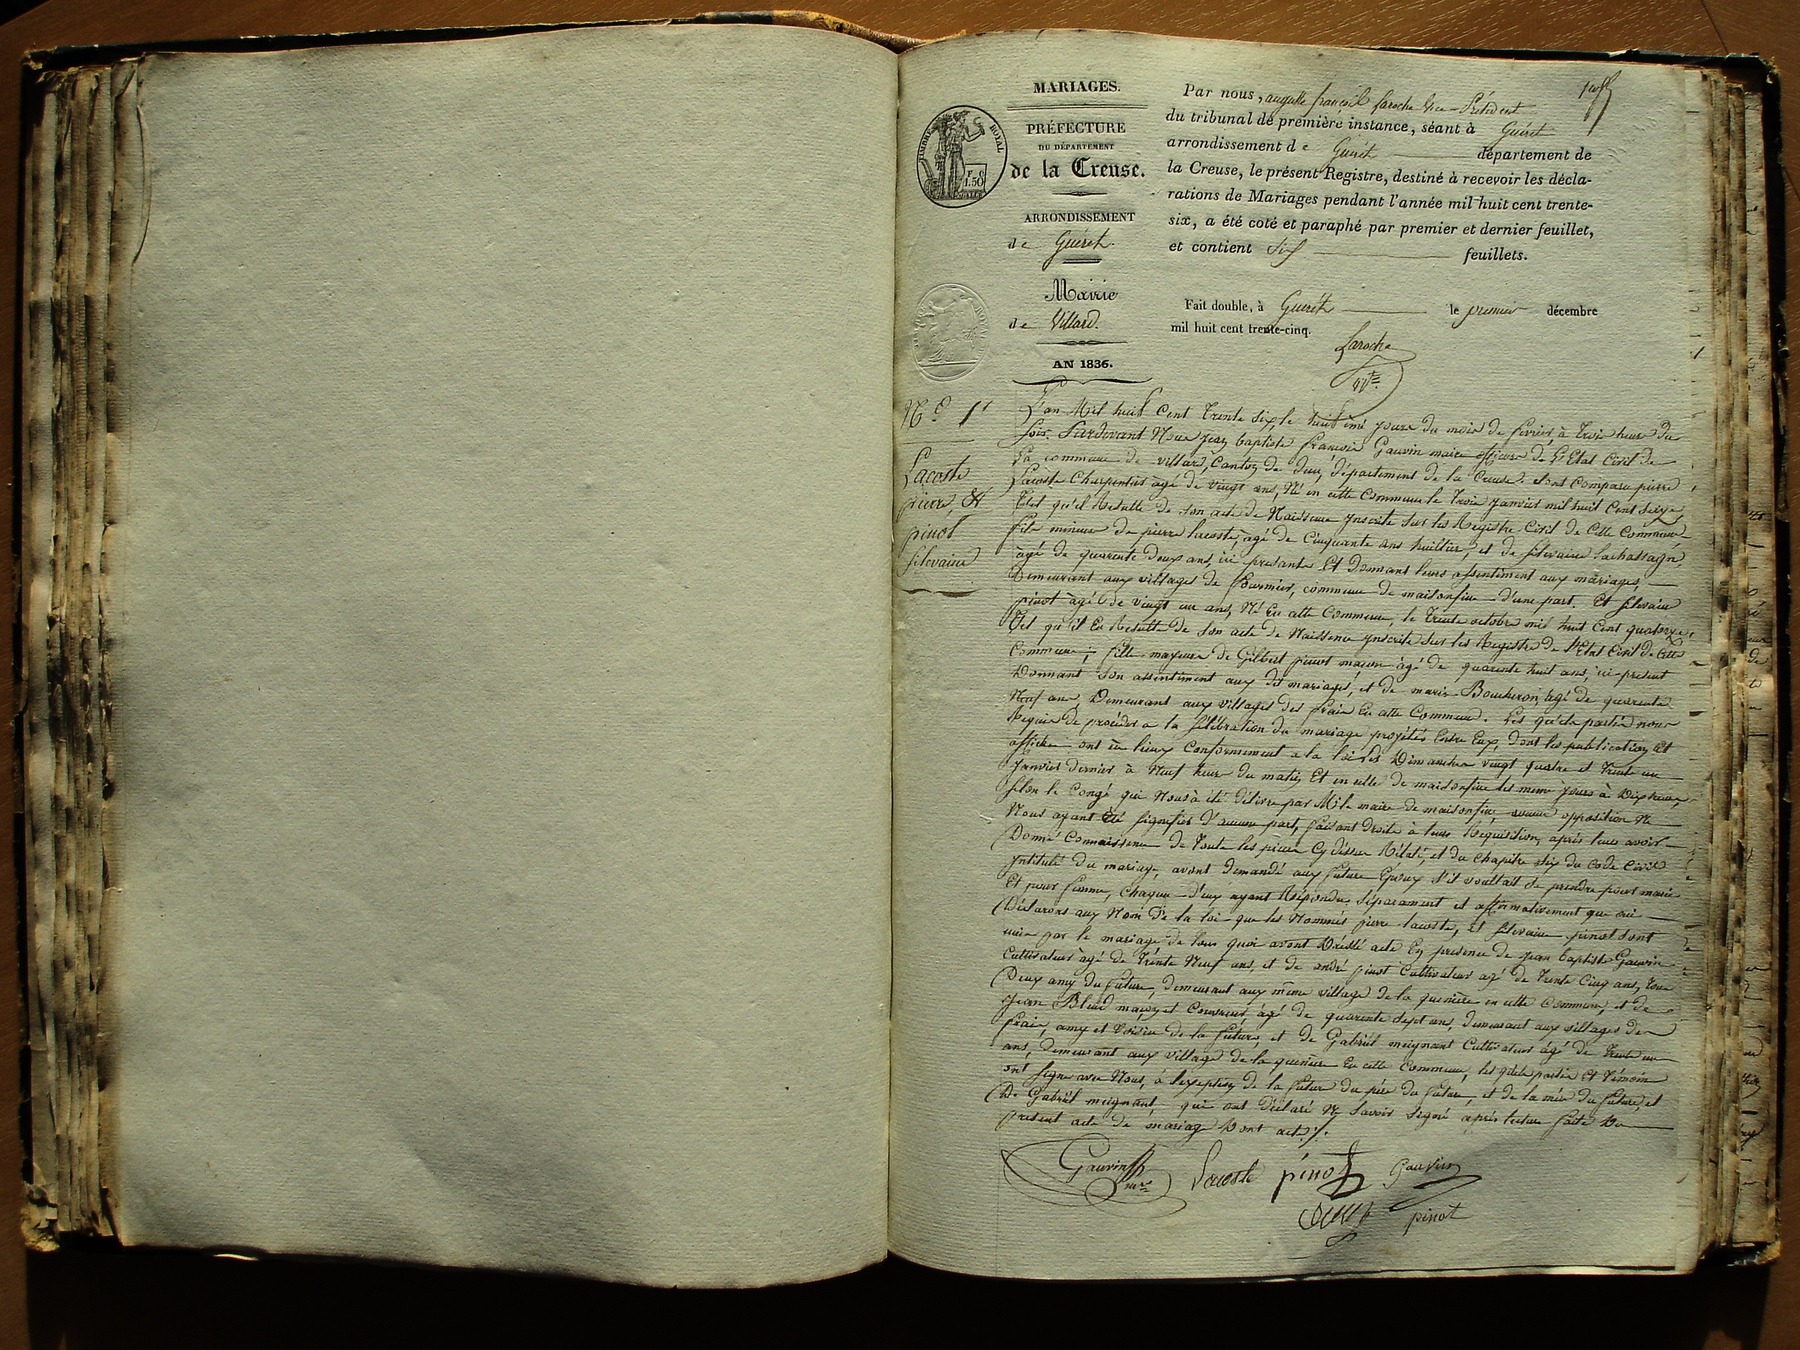 MARIAGES.
PRÉFECTURE
DU DÉPARTEMENT
de la Creuse.
TIMBRE ROYAL
F. C.
1.50
ARRONDISSEMENT
de Guéret.
Mairie
de Villard.
AN 1836.
Par nous, auguste françois Laroche Vice-Président
du tribunal de première instance, séant à Guéret
arrondissement de Guéret département de
la Creuse, le présent Registre, destiné à recevoir les décla-
rations de Mariages pendant l'année mil huit cent trente-
six, a été coté et paraphé par premier et dernier feuillet,
et contient Six feuillets.
Fait double, à Guéret le premier décembre
mil huit cent trente-cinq.
Laroche
N° 1er
Lacoste
pierre, et
pinot
silvaine
L'an Mil huit Cent Trente Six, le huitième jours du mois de fevrier, à Trois heure du
soir. Pardevant Nous jean baptiste françois Gauvin maire officier de L'Etat Civil de
La commune de villard, Canton de dun, département de la Creuse. Sont Comparu pierre
Lacoste Charpentier âgé de vingt ans, Né en cette Commune le Trois janvier mil huit Cent Seize
Tel qu'il Resulte de son acte de Naissance ynscrite sur les Registre Civil de Cette Commune
fils mineur de pierre lacoste, âgé de Cinquante ans huillier, et de silvaine Lachassagne
âgé de quarente deux ans, ici presante Et Donnant leurs assentiment aux mariages
Demeurant aux villages de fournier, commune de maisonfine d'une part. Et silvaine
pinot âgé de vingt un ans, Né En cette Commune, le Trente octobre mil huit Cent quatorze
Tel qu'il En Resulte de Son acte de Naissance ynscrite sur les Registre de l'Etat Civil de Cette
Commune, fille mageure de Gilbert pinot maçon âgé de quarente huit ans, ici present
Donnant son assentiment aux dit mariages, et de marie Boucheron, âgé de quarente
Neuf ans, Demeurant aux villages des frais En cette Commune. Les quels partie nous
Requis de procéder a la Célébration du mariage projetés Entre Eux, dont les publications Et
affiche ont eu lieux Conformement a la loi les Dimanches vingt quatre et Trente un
janvier dernier à Neuf heure du matin, Et en celle de maisonfine les meme jours à Dix heure,
selon le Congé qui Nous à été délivré par M. le maire de maisonfine, aucune opposition Ne
Nous ayant été signifiés d'aucune part, faisant droite à leurs Requisition, après leurs avoir
Donné Connaissance de Toute les pièces Cy dessus Rélaté, et du Chapitre Six du Code Civil
yntitulé du mariage, avont demandé aux future Epoux s'il voullait se prendre pour marie
Et pour femme, Chaqun d'eux ayant Répondu séparament et affirmativement que oui
Déclarons aux Nom de la loi que les Nommés pierre lacoste, Et silvaine pinot sont
unie par le mariage de tous quoi avont Dressé acte En presence de jean baptiste Gauvin
Cultivateur âgé de Trente Neuf ans, et de andré pinot Cultivateur âgé de Trente Cinq ans, tous
Deux amy du future, demeurant aux même village de la quenière en cette Commune, et de
jean maçon et Couvreur, âgé de quarente sept ans, demeurant aux villages des
frais, amy et Voisin de la future, et de Gabriël meignant Cultivateur âgé de Trente un
ans, demeurant aux village de la quenière En cette Commune, les qdels partie Et Témoin
ont signe avec Nous, à l'exeption de la future du père du future, et de la mère du future, et
De Gabriël meignant, qui ont déclaré Ne savoir signé après lecture faite Du
present acte de mariage Dont acte /.
Gauvin
mre
Lacoste pinot Gauvin
pinot